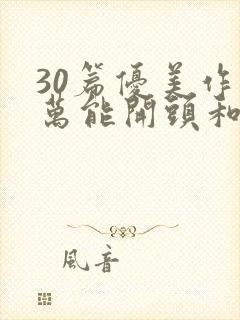 30篇優美作
萬能開頭和
風音